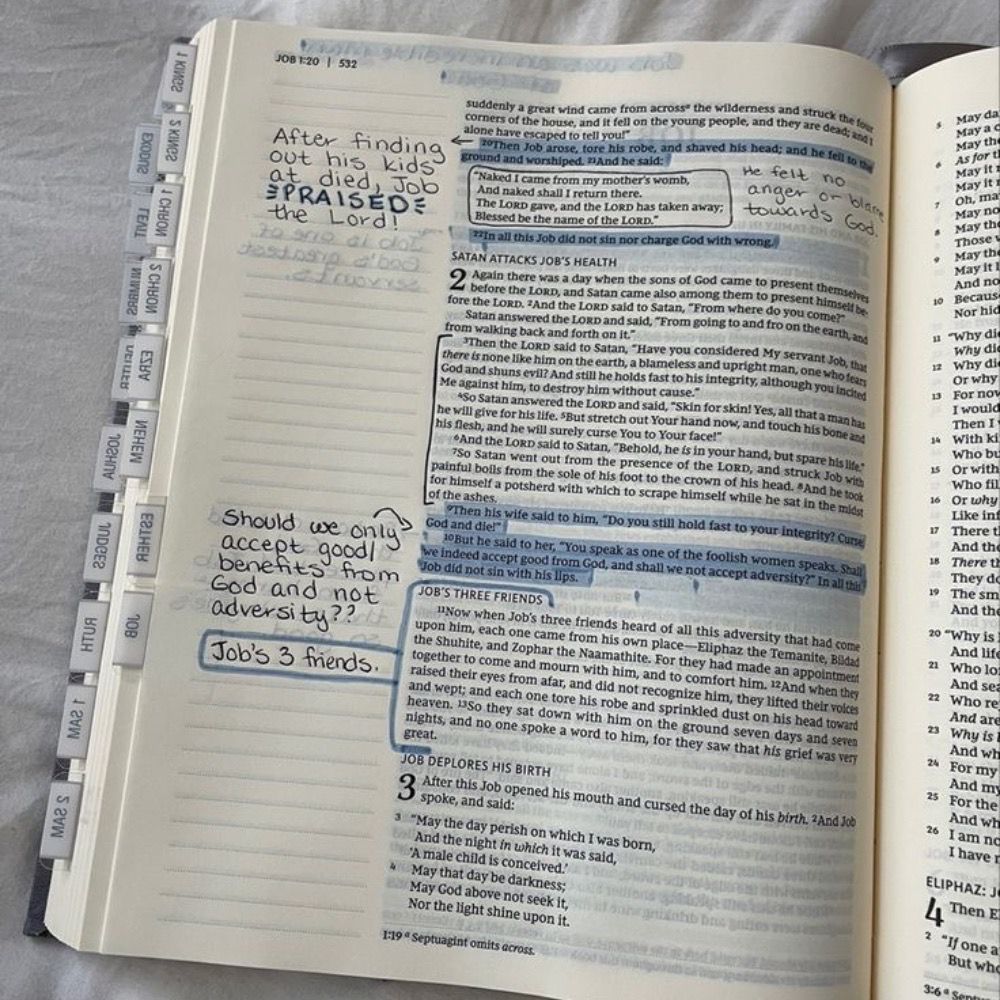 JOB 1:20 | 532
suddenly a great wind came from acrossª the wilderness and struck the four
corners of the house, and it fell on the young people, and they are dead; and I
alone have escaped to tell you!”
²⁰Then Job arose, tore his robe, and shaved his head; and he fell to the
ground and worshiped. ²¹And he said:
“Naked I came from my mother’s womb,
And naked shall I return there.
The LORD gave, and the LORD has taken away;
Blessed be the name of the LORD.”
²²In all this Job did not sin nor charge God with wrong.
After finding
out his kids
at died, Job
PRAISED
the Lord!
He felt no
anger or blame
towards God.
SATAN ATTACKS JOB’S HEALTH
2 Again there was a day when the sons of God came to present themselves
before the LORD, and Satan came also among them to present himself be-
fore the LORD. ²And the LORD said to Satan, “From where do you come?”
Satan answered the LORD and said, “From going to and fro on the earth, and
from walking back and forth on it.”
³Then the LORD said to Satan, “Have you considered My servant Job, that
there is none like him on the earth, a blameless and upright man, one who fears
God and shuns evil? And still he holds fast to his integrity, although you incited
Me against him, to destroy him without cause.”
⁴So Satan answered the LORD and said, “Skin for skin! Yes, all that a man has
he will give for his life. ⁵But stretch out Your hand now, and touch his bone and
his flesh, and he will surely curse You to Your face!”
⁶And the LORD said to Satan, “Behold, he is in your hand, but spare his life.”
⁷So Satan went out from the presence of the LORD, and struck Job with
painful boils from the sole of his foot to the crown of his head. ⁸And he took
for himself a potsherd with which to scrape himself while he sat in the midst
of the ashes.
⁹Then his wife said to him, “Do you still hold fast to your integrity? Curse
God and die!”
¹⁰But he said to her, “You speak as one of the foolish women speaks. Shall
we indeed accept good from God, and shall we not accept adversity?” In all this
Job did not sin with his lips.
Should we only
accept good/
benefits from
God and not
adversity??
JOB’S THREE FRIENDS
¹¹Now when Job’s three friends heard of all this adversity that had come
upon him, each one came from his own place—Eliphaz the Temanite, Bildad
the Shuhite, and Zophar the Naamathite. For they had made an appointment
together to come and mourn with him, and to comfort him. ¹²And when they
raised their eyes from afar, and did not recognize him, they lifted their voices
and wept; and each one tore his robe and sprinkled dust on his head toward
heaven. ¹³So they sat down with him on the ground seven days and seven
nights, and no one spoke a word to him, for they saw that his grief was very
great.
Job’s 3 friends.
JOB DEPLORES HIS BIRTH
3 After this Job opened his mouth and cursed the day of his birth. ²And Job
spoke, and said:
3 “May the day perish on which I was born,
And the night in which it was said,
‘A male child is conceived.’
4 May that day be darkness;
May God above not seek it,
Nor the light shine upon it.
1:19 ª Septuagint omits across.
1 KINGS
2 KINGS
EXODUS
1 CHRON
LEVIT
2 CHRON
NUMBERS
EZRA
NEHEM
JOSHUA
ESTHER
JUDGES
JOB
RUTH
1 SAM
2 SAM
5 May da
May a
May the
6 As for
May it
May it
7 Oh, ma
May no
8 May the
Those
9 May the
May it
And no
10 Becaus
Nor hid
11 “Why die
Why did
12 Why did
Or why
13 For now
I would
Then I
14 With ki
Who bu
15 Or with
Who fil
16 Or why
Like inf
17 There
And the
18 There
They do
19 The sm
And the
20 “Why is
And life
21 Who lo
And sea
22 Who re
And are
23 Why is
And wh
24 For my
And my
25 For the
And wh
26 I am no
I have
ELIPHAZ:
4 Then
2 “If one a
But who
3:6 ª